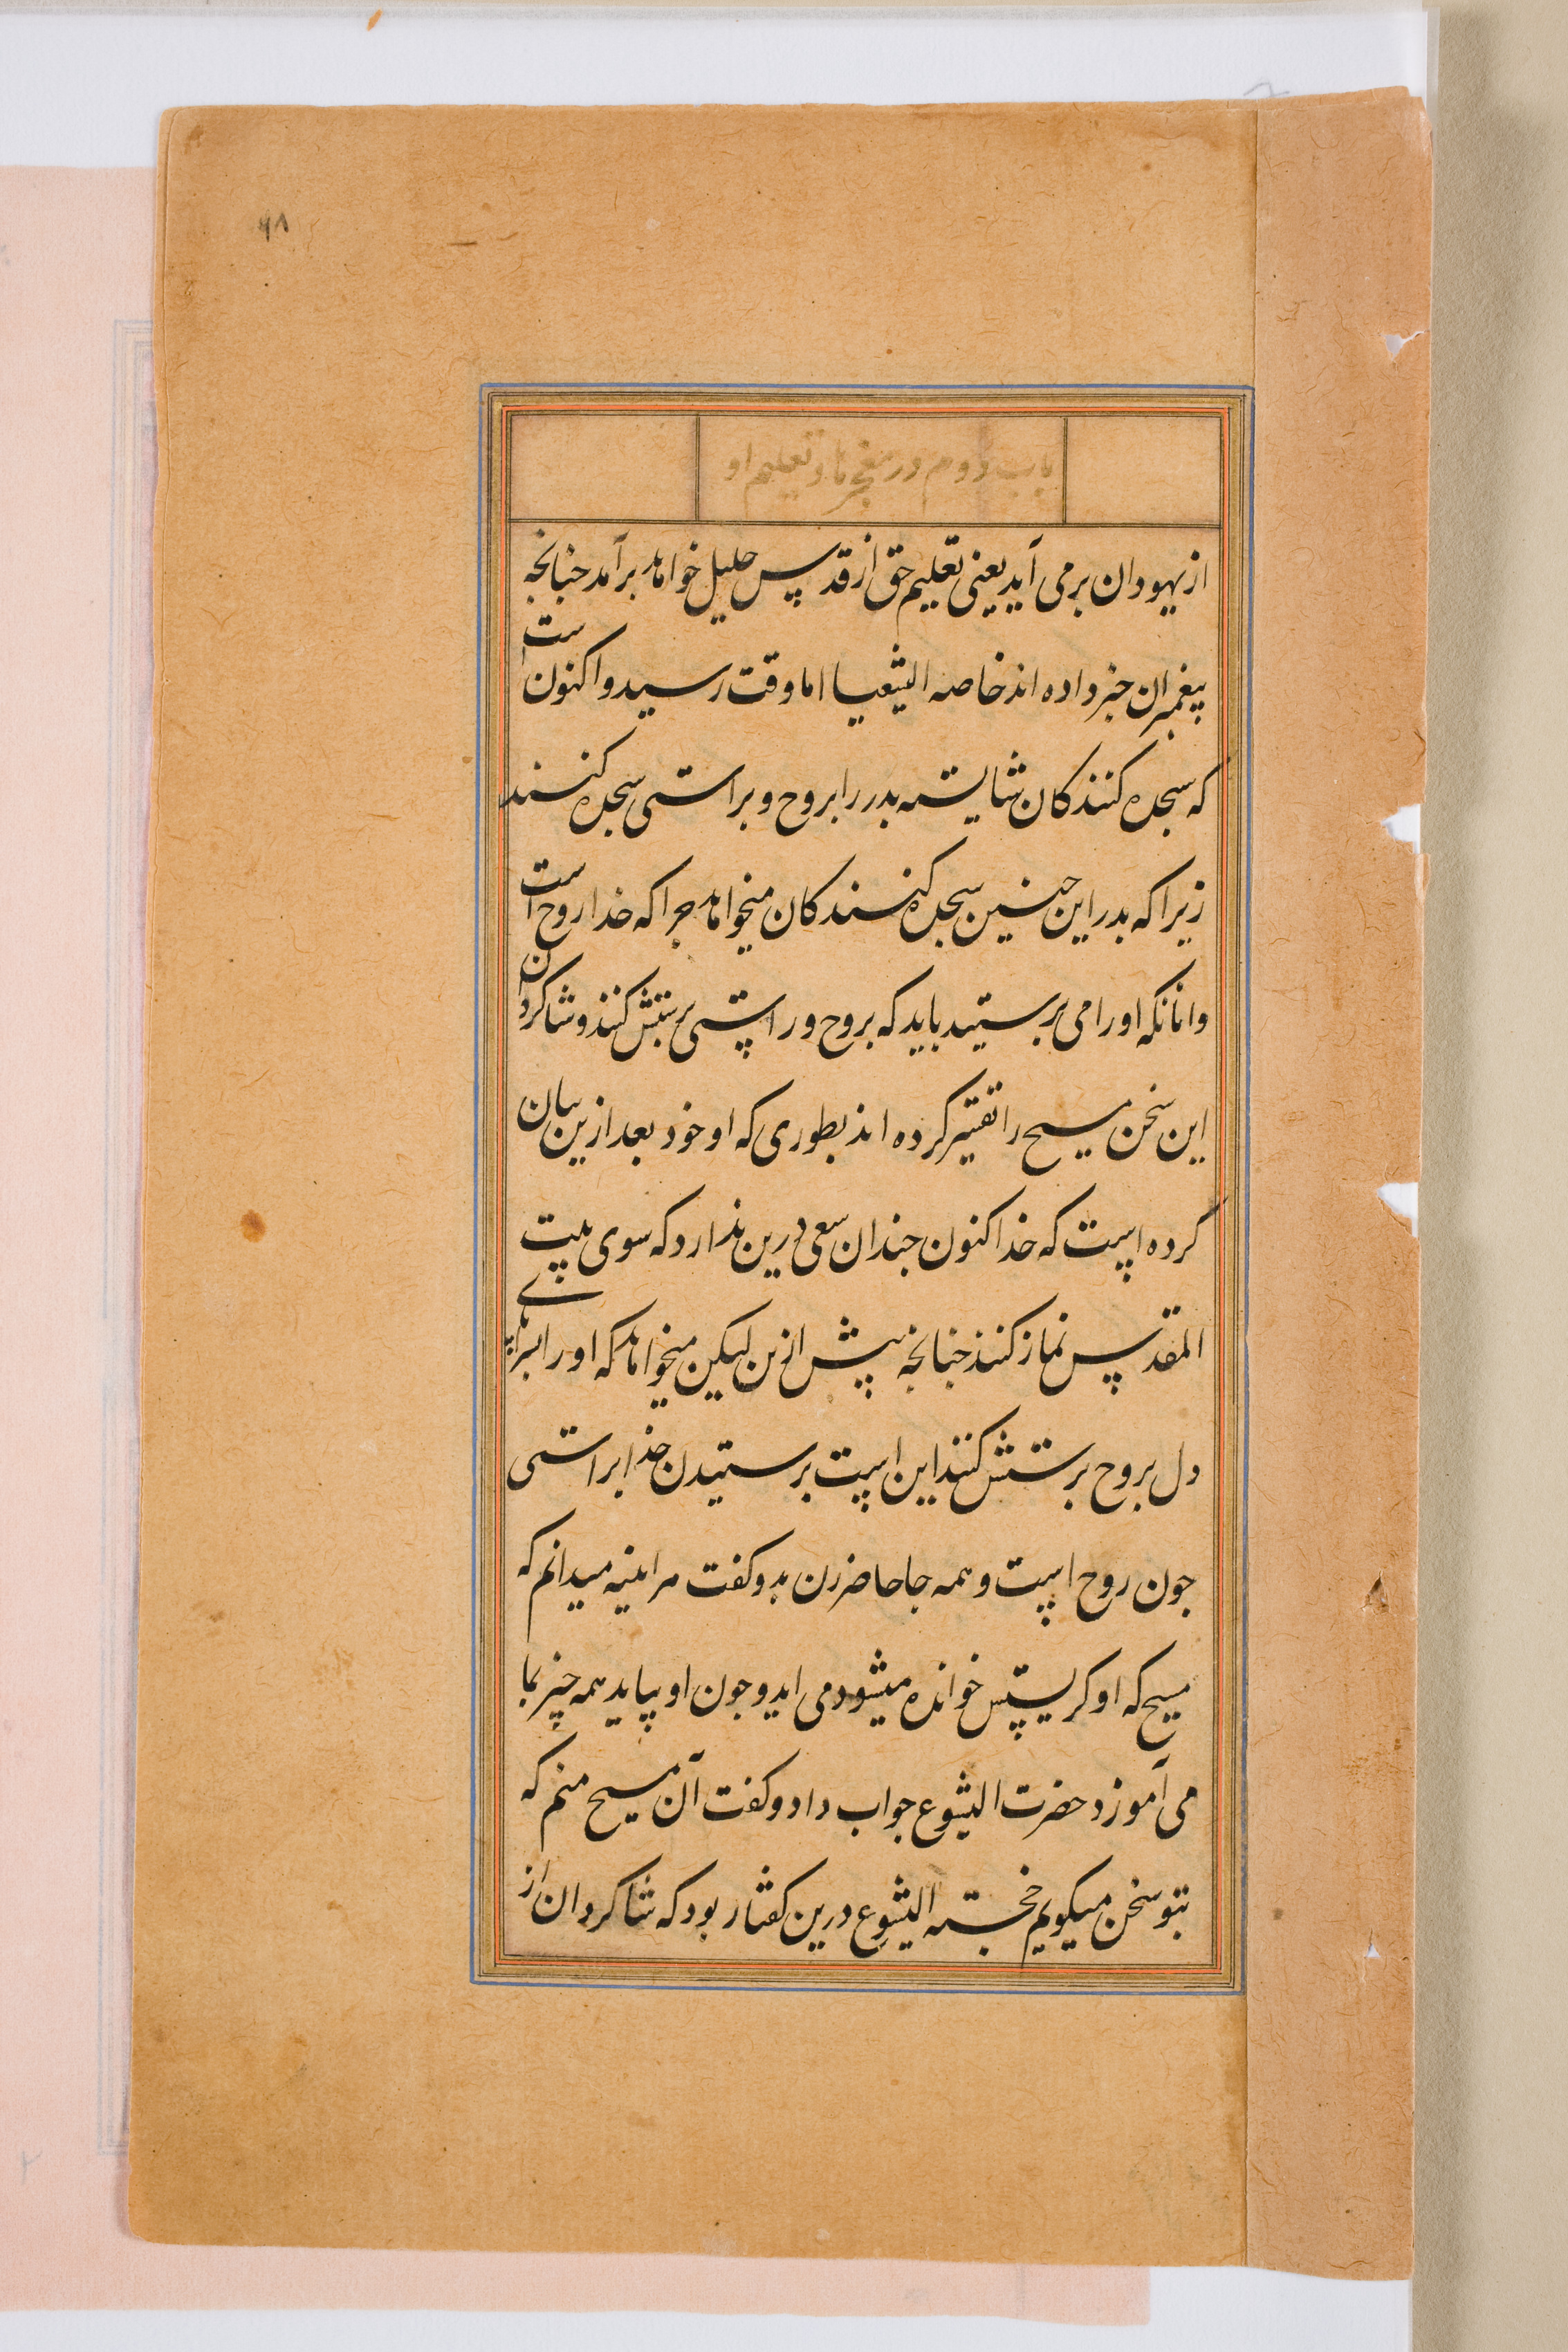 ۹۸
باب دوم در معجزها و تعلیم او
از یهودان برمی آید یعنی تعلیم حق از قدس جلیل خواهد برآمد جنانجه
پیغمبران خبر داده اند خاصه الیشعیا اما وقت رسید و اکنون است
که سجده کنندکان شایسته بدر را بروح و براستی سجده کنند
زیرا که بدر این جنین سجده کنندکان میخواهد جرا که خدا روح است
وانانکه اورا می برستید باید که بروح و راستی برستش کنند و شاکردان
این سخن مسیح را تفسیر کرده اند بطوری که او خود بعد ازین بیان
کرده است که خدا کنون جندان سعی درین ندارد که سوی بیت
المقدس نماز کنند جنانجه پیش ازین لیکن میخواهد که اورا برای
دل بروح برستش کنند این است برستیدن خدا براستی
جون روح است و همه جا حاضر زن بدو کفت هراینه میدانم که
مسیح که او کریستس خوانده میشود می اید و جون او بیاید همه چیز بما
می آموزد حضرت الیشوع جواب داد و کفت آن مسیح منم که
بتو سخن میکویم خجسته الیشوع درین کفتار بود که شاکردان از